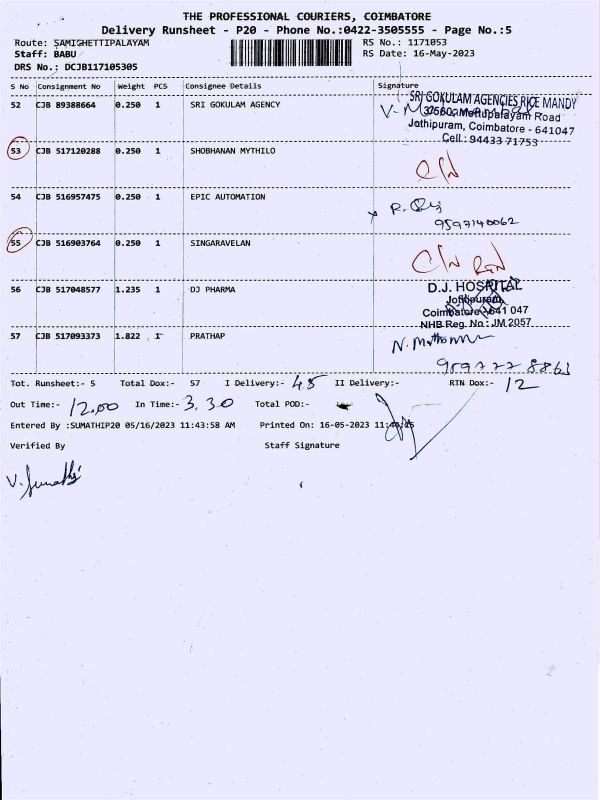 THE PROFESSIONAL COURIERS, COIMBATORE
Delivery Runsheet - P20 - Phone No.:0422-3505555 - Page No.:5
Route: SAMICHETTIPALAYAM RS No.: 1171053
Staff: BABU RS Date: 16-May-2023
DRS No.: DCJB117105305
S No Consignment No Weight PCS Consignee Details Signature
52 CJB 89388664 0.250 1 SRI GOKULAM AGENCY
SRI GOKULAM AGENCIES RICE MANDY
Mettupalayam Road
Jothipuram, Coimbatore - 641047
Cell : 94433 71753
53 CJB 517120288 0.250 1 SHOBHANAN MYTHILO
54 CJB 516957475 0.250 1 EPIC AUTOMATION
9597140062
55 CJB 516903764 0.250 1 SINGARAVELAN
56 CJB 517048577 1.235 1 DJ PHARMA
D.J. HOSPITAL
Jothipuram,
Coimbatore - 641 047
NHB Reg. No : JM 2057
57 CJB 517093373 1.822 1 PRATHAP
Tot. Runsheet:- 5 Total Dox:- 57 I Delivery:- 45 II Delivery:- RTN Dox:- 12
Out Time:- 12.00 In Time:- 3.30 Total POD:-
Entered By :SUMATHIP20 05/16/2023 11:43:58 AM Printed On: 16-05-2023
Verified By Staff Signature